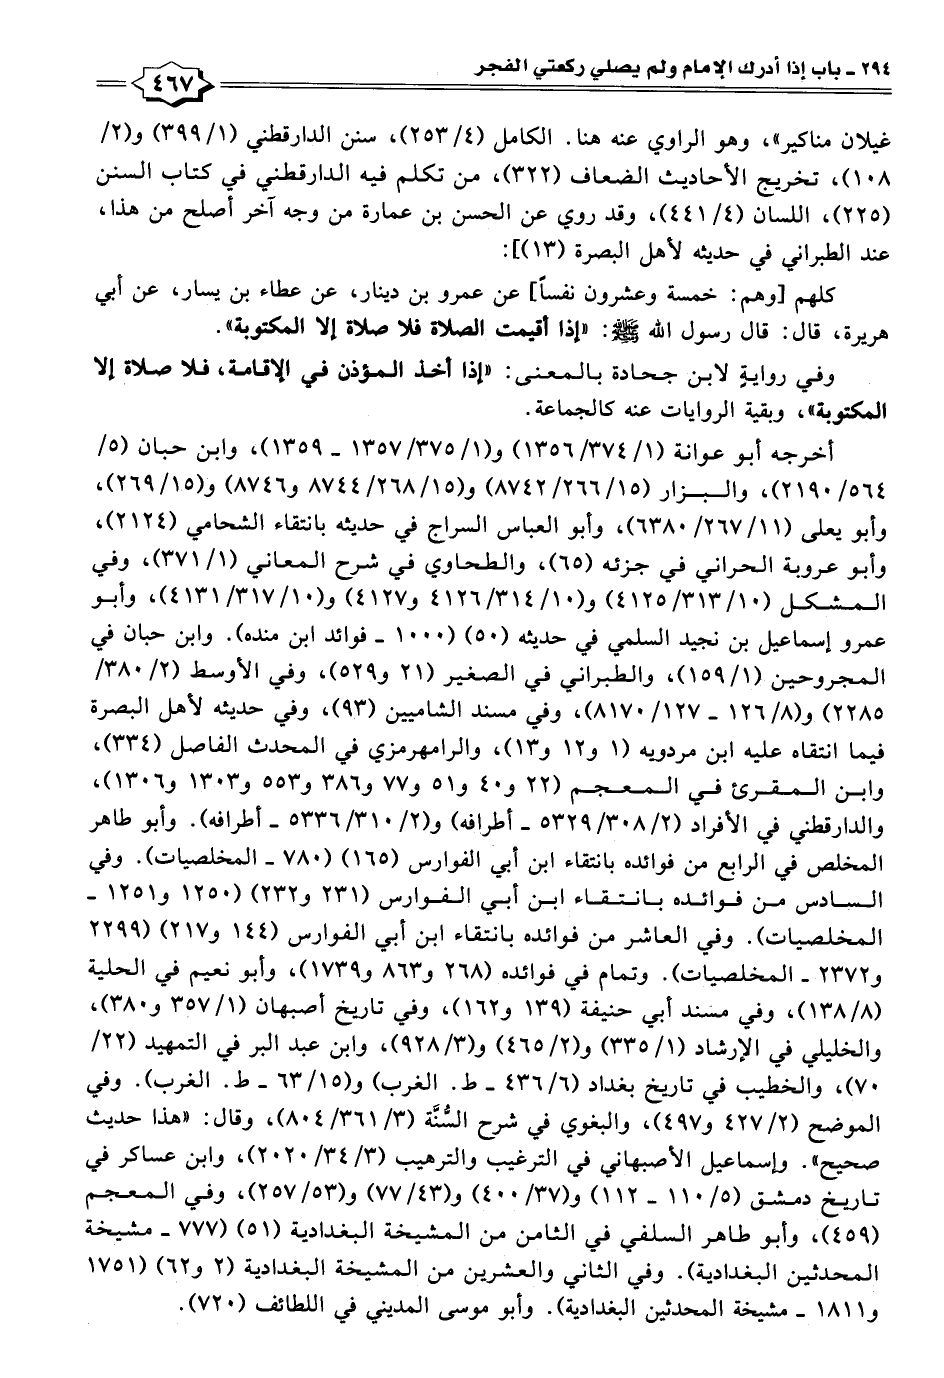 ٢٩٤ ـ باب إذا أدرك الإمام ولم يصلي ركعتي الفجر
٤٦٧
غيلان مناكير»، وهو الراوي عنه هنا. الكامل (٢٥٣/٤)، سنن الدارقطني (٣٩٩/١) و(٢/
١٠٨)، تخريج الأحاديث الضعاف (٣٢٢)، من تكلم فيه الدارقطني في كتاب السنن
(٢٢٥)، اللسان (٤٤١/٤)، وقد روي عن الحسن بن عمارة من وجه آخر أصلح من هذا،
عند الطبراني في حديثه لأهل البصرة (١٣)]:
كلهم [وهم: خمسة وعشرون نفساً] عن عمرو بن دينار، عن عطاء بن يسار، عن أبي
هريرة، قال: قال رسول الله ﷺ: «إذا أقيمت الصلاة فلا صلاة إلا المكتوبة».
وفي روايةٍ لابن جحادة بالمعنى: «إذا أخذ المؤذن في الإقامة، فلا صلاة إلا
المكتوبة»، وبقية الروايات عنه كالجماعة.
أخرجه أبو عوانة (١٣٥٦/٣٧٤/١) و(١٣٥٧/٣٧٥/١ ـ ١٣٥٩)، وابن حبان (٥/
٢١٩٠/٥٦٤)، والبزار (٨٧٤٢/٢٦٦/١٥) و(٨٧٤٤/٢٦٨/١٥ و٨٧٤٦) و(٢٦٩/١٥)،
وأبو يعلى (٦٣٨٠/٢٦٧/١١)، وأبو العباس السراج في حديثه بانتقاء الشحامي (٢١٢٤)،
وأبو عروبة الحراني في جزئه (٦٥)، والطحاوي في شرح المعاني (٣٧١/١)، وفي
المشكل (٤١٢٥/٣١٣/١٠) و(٤١٢٦/٣١٤/١٠ و٤١٢٧) و(٤١٣١/٣١٧/١٠)، وأبو
عمرو إسماعيل بن نجيد السلمي في حديثه (٥٠) (١٠٠٠ ـ فوائد ابن منده). وابن حبان في
المجروحين (١٥٩/١)، والطبراني في الصغير (٢١ و٥٢٩)، وفي الأوسط (٣٨٠/٢/
٢٢٨٥) و(١٢٦/٨ ـ ٨١٧٠/١٢٧)، وفي مسند الشاميين (٩٣)، وفي حديثه لأهل البصرة
فيما انتقاه عليه ابن مردويه (١ و١٢ و١٣)، والرامهرمزي في المحدث الفاصل (٣٣٤)،
وابن المقرئ في المعجم (٢٢ و٤٠ و٥١ و٧٧ و٣٨٦ و٥٥٣ و١٣٠٣ و١٣٠٦)،
والدارقطني في الأفراد (٥٣٢٩/٣٠٨/٢ ـ أطرافه) و(٥٣٣٦/٣١٠/٢ ـ أطرافه). وأبو طاهر
المخلص في الرابع من فوائده بانتقاء ابن أبي الفوارس (١٦٥) (٧٨٠ ـ المخلصيات). وفي
السادس من فوائده بانتقاء ابن أبي الفوارس (٢٣١ و٢٣٢) (١٢٥٠ و١٢٥١ ـ
المخلصيات). وفي العاشر من فوائده بانتقاء ابن أبي الفوارس (١٤٤ و٢١٧) (٢٢٩٩
و٢٣٧٢ ـ المخلصيات). وتمام في فوائده (٢٦٨ و٨٦٣ و١٧٣٩)، وأبو نعيم في الحلية
(١٣٨/٨)، وفي مسند أبي حنيفة (١٣٩ و١٦٢)، وفي تاريخ أصبهان (٣٥٧/١ و٣٨٠)،
والخليلي في الإرشاد (٣٣٥/١) و(٤٦٥/٢) و(٩٢٨/٣)، وابن عبد البر في التمهيد (٢٢/
٧٠)، والخطيب في تاريخ بغداد (٤٣٦/٦ ـ ط. الغرب) و(٦٣/١٥ ـ ط. الغرب). وفي
الموضح (٤٢٧/٢ و٤٩٧)، والبغوي في شرح السُّنَّة (٨٠٤/٣٦١/٣)، وقال: «هذا حديث
صحيح». وإسماعيل الأصبهاني في الترغيب والترهيب (٢٠٢٠/٣٤/٣)، وابن عساكر في
تاريخ دمشق (١١٠/٥ ـ ١١٢) و(٤٠٠/٣٧) و(٧٧/٤٣) و(٢٥٧/٥٣)، وفي المعجم
(٤٥٩)، وأبو طاهر السلفي في الثامن من المشيخة البغدادية (٥١) (٧٧٧ ـ مشيخة
المحدثين البغدادية). وفي الثاني والعشرين من المشيخة البغدادية (٢ و٦٢) (١٧٥١
و١٨١١ ـ مشيخة المحدثين البغدادية). وأبو موسى المديني في اللطائف (٧٢٠).